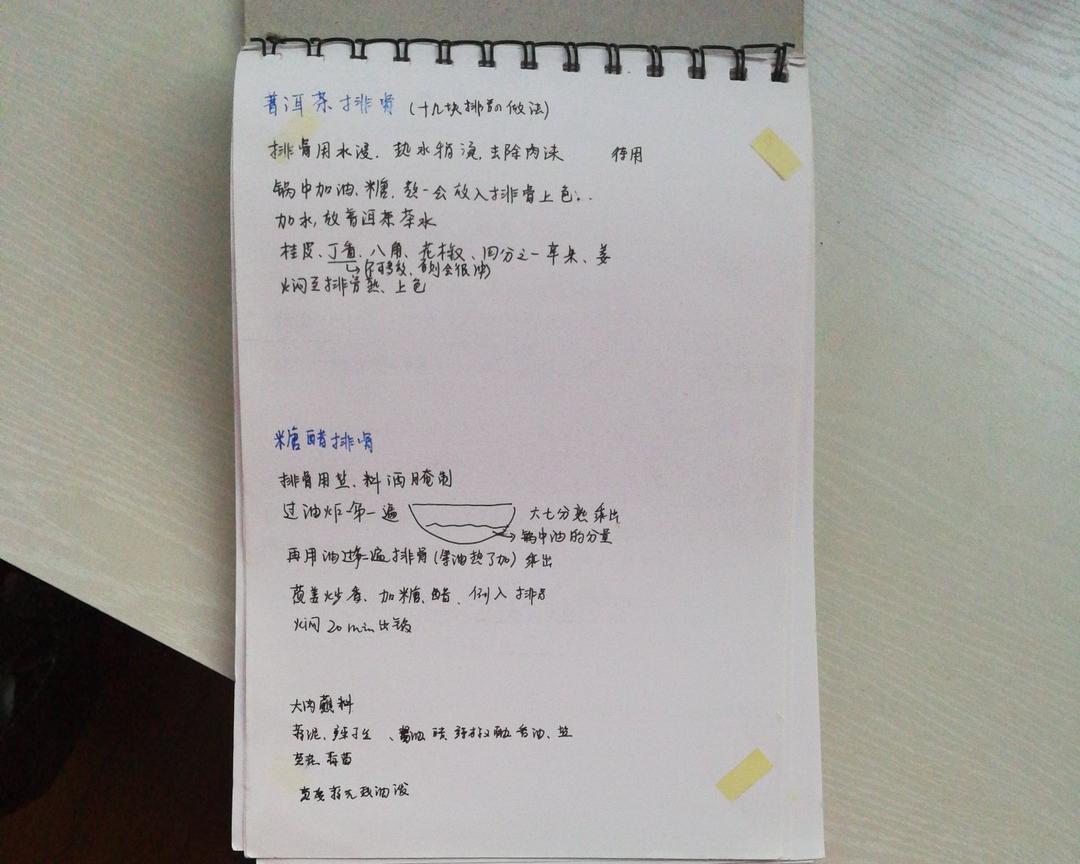 普洱茶排骨 (十几块排骨の做法)
排骨用水浸. 热水稍烫, 去除肉沫 待用
锅中加油、糖, 熬一会放入排骨上色...
加水, 放普洱茶茶水
桂皮、丁香、八角、花椒、四分之一草果、姜
不可多放, 否则会很冲
焖至排骨熟、上色
糖醋排骨
排骨用盐、料酒腌制
过油炸一第一遍 大七分熟乘出
锅中油的分量
再用油过第二遍排骨 (等油热了加) 乘出
葱姜炒香、加糖、醋、倒入排骨
焖 20 min 出锅
大肉蘸料
蒜泥、酱油 醋 香油、盐
热油泼